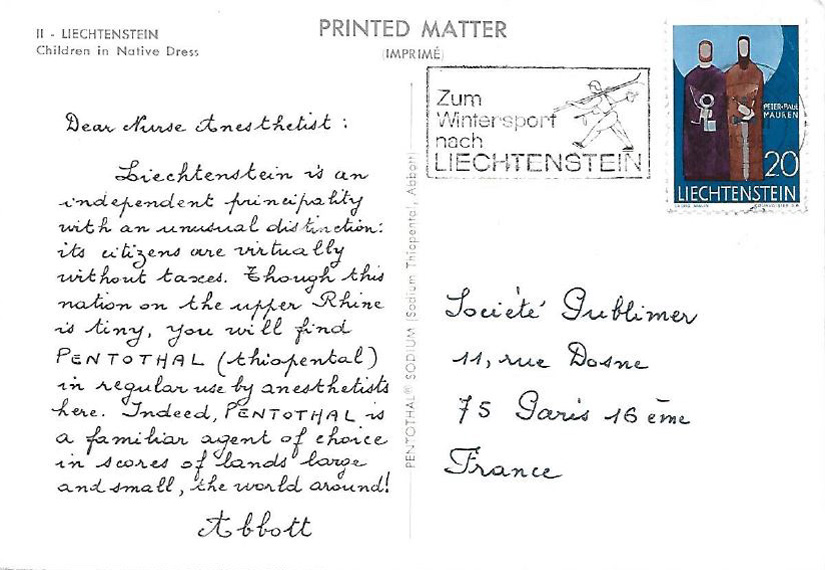 II - LIECHTENSTEIN
Children in Native Dress
PRINTED MATTER
(IMPRIMÉ)
Zum
Wintersport
nach
LIECHTENSTEIN
PETER+PAUL
MAUREN
20
LIECHTENSTEIN
Dear Nurse Anesthetist :
Liechtenstein is an
independent principality
with an unusual distinction:
its citizens are virtually
without taxes. Though this
nation on the upper Rhine
is tiny, you will find
PENTOTHAL (thiopental)
in regular use by anesthetists
here. Indeed, PENTOTHAL is
a familiar agent of choice
in scores of lands large
and small, the world around!
Abbott
PENTOTHAL® SODIUM (Sodium Thiopental, Abbott)
Société Publimer
11, rue Dosne
75 Paris 16 ème
France